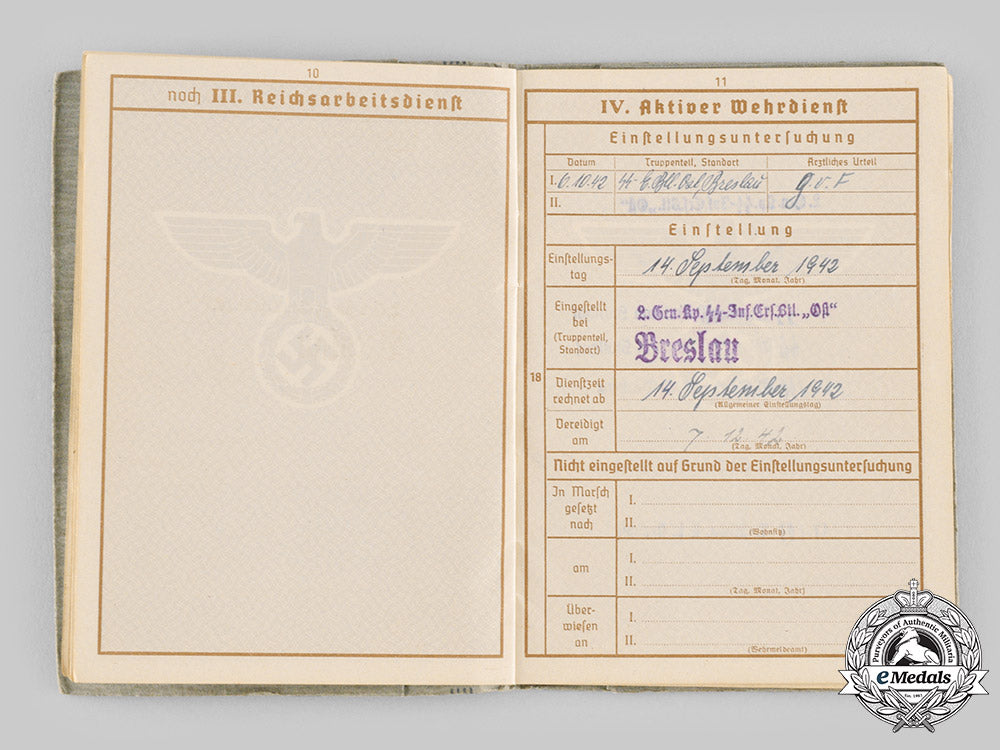 10
noch III. Reichsarbeitsdienst
11
IV. Aktiver Wehrdienst
Einstellungsuntersuchung
Datum Truppenteil, Standort Ärztliches Urteil
I. 6.10.42 SS-E.Btl. Ost, Breslau g.v.F
II.
Einstellung
Einstellungs-
tag
14. September 1942
(Tag, Monat, Jahr)
Eingestellt
bei
(Truppenteil,
Standort)
2. Grn.Kp. SS-Inf.Ers.Btl. „Ost"
Breslau
18
Dienstzeit
rechnet ab
14. September 1942
(Allgemeiner Einstellungstag)
Vereidigt
am
7. 12. 42
(Tag, Monat, Jahr)
Nicht eingestellt auf Grund der Einstellungsuntersuchung
In Marsch
gesetzt
nach
I.
II.
(Wohnsitz)
am
I.
II.
(Tag, Monat, Jahr)
Über-
wiesen
an
I.
II.
(Wehrmeldeamt)
Purveyors of Authentic Militaria
eMedals